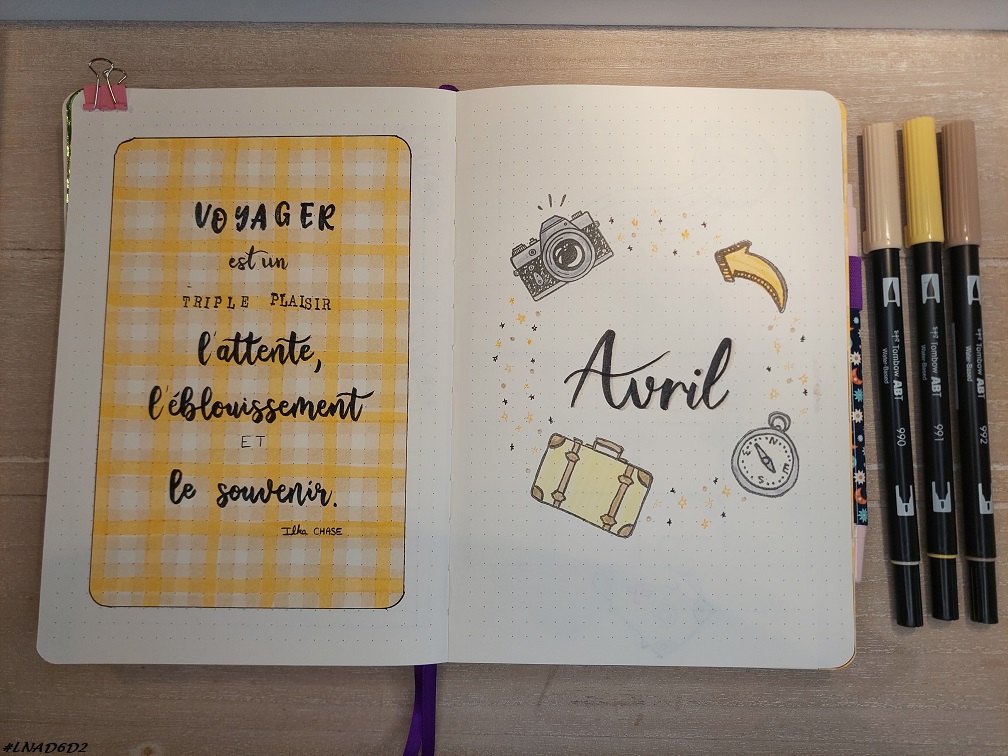 VOYAGER
est un
TRIPLE PLAISIR
l'attente,
l'éblouissement
ET
le souvenir.
Ilka CHASE
Avril
N
E
S
Tombow ABT
Water-Based
990
Tombow ABT
Water-Based
991
Tombow ABT
Water-Based
992
#LNAD6D2